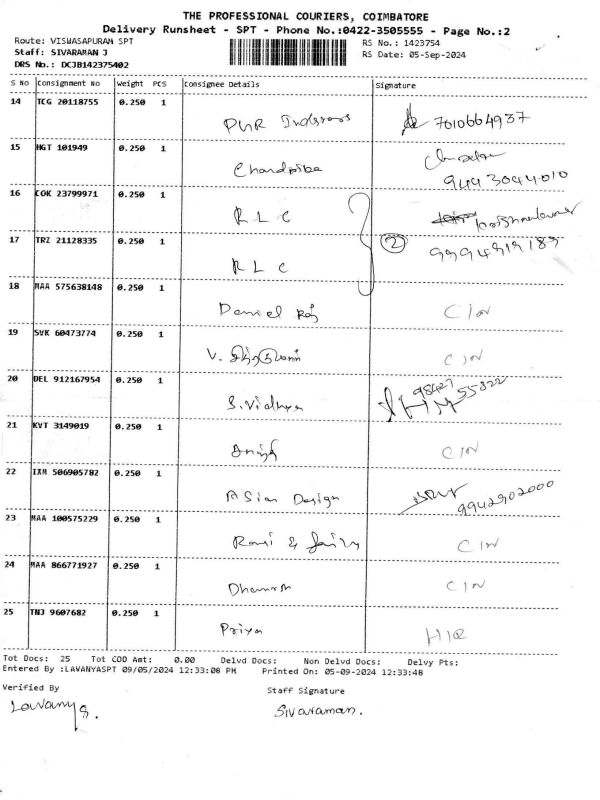 THE PROFESSIONAL COURIERS, COIMBATORE
Delivery Runsheet - SPT - Phone No.:0422-3505555 - Page No.:2
Route: VISWASAPURAM SPT RS No.: 1423754
Staff: SIVARAMAN J RS Date: 05-Sep-2024
DRS No.: DCJB142375402
S No Consignment No Weight PCS Consignee Details Signature
14 TCG 20118755 0.250 1
PNR 7010664937
15 HGT 101949 0.250 1
9443044010
16 COK 23799971 0.250 1
RLC
17 TRZ 21128335 0.250 1 2 9994919189
RLC
18 MAA 575638148 0.250 1
Daniel Raj C/N
19 SVK 60473774 0.250 1
V. C/N
20 DEL 912167954 0.250 1 98427 55322
S. Vidhya
21 KVT 3149019 0.250 1
C/N
22 IXM 506905782 0.250 1
Asian Design 9942902000
23 MAA 100575229 0.250 1
Ravi & C/N
24 MAA 866771927 0.250 1
C/N
25 TNJ 9607682 0.250 1
Priya
Tot Docs: 25 Tot COD Amt: 0.00 Delvd Docs: Non Delvd Docs: Delvy Pts:
Entered By :LAVANYASPT 09/05/2024 12:33:08 PM Printed On: 05-09-2024 12:33:48
Verified By Staff Signature
Lavanya. Sivaraman.